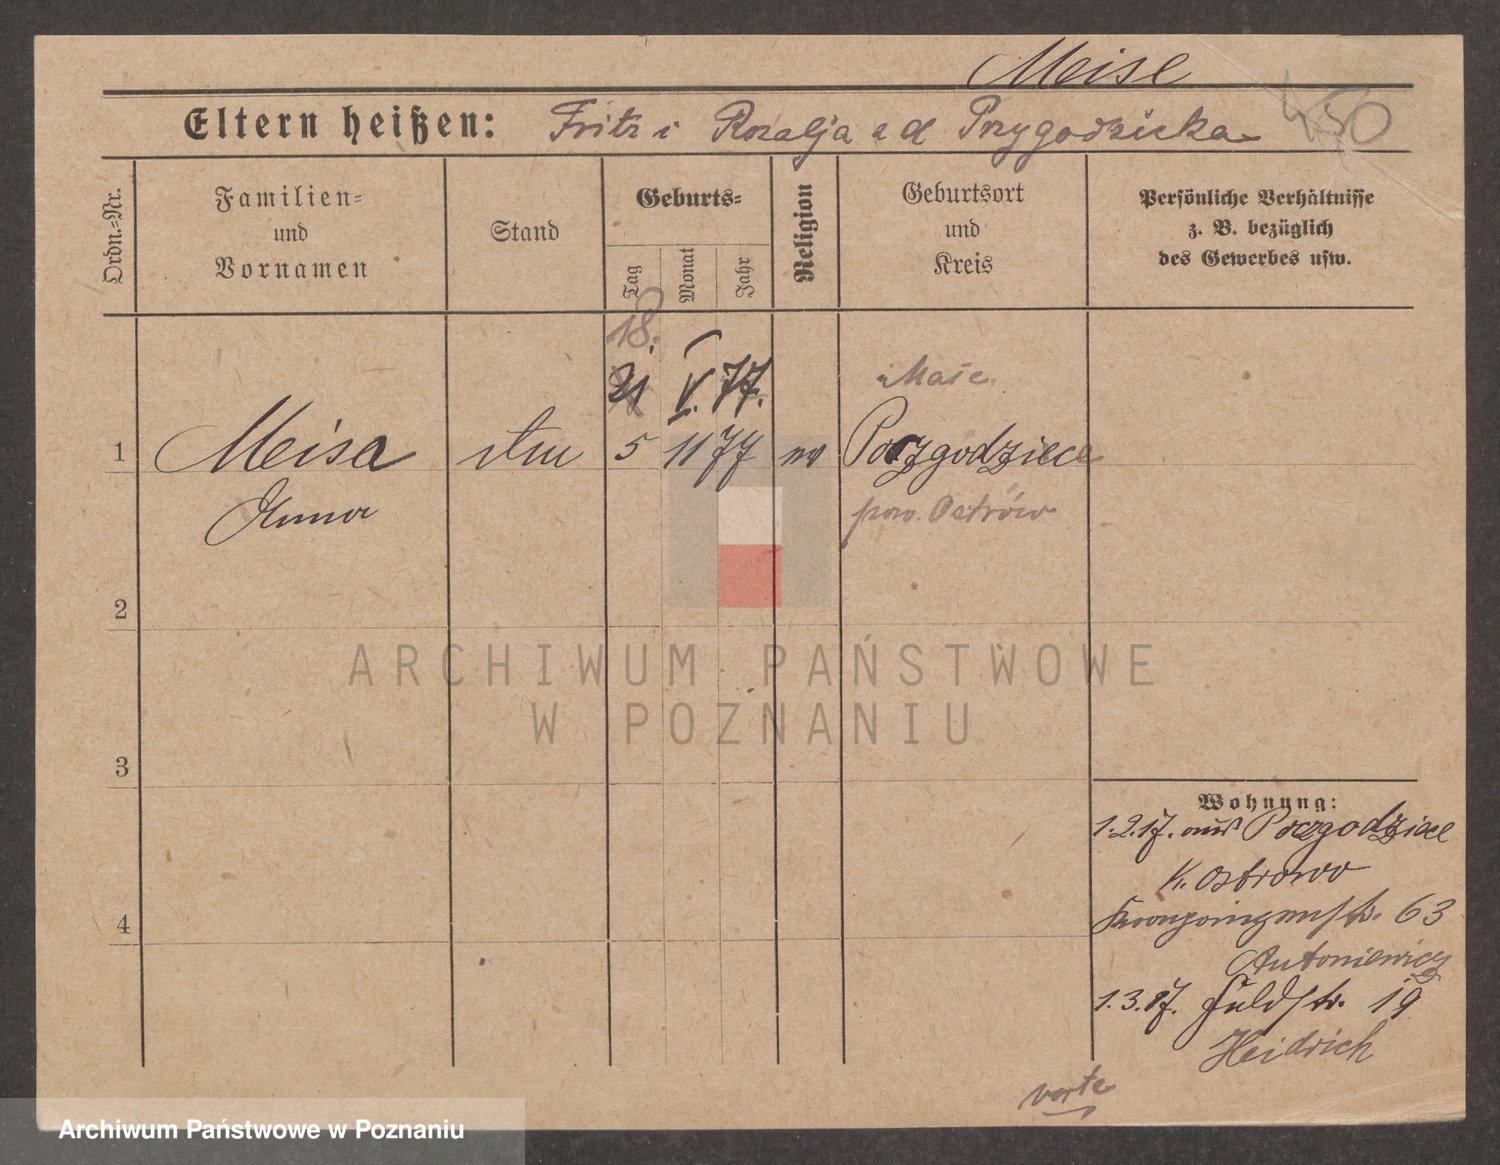 Meise
Eltern heißen: Fritz i Rozalja z d Przygodzicka
450
Ordn.-Nr.
Familien-
und
Vornamen
Stand
Geburts-
Tag
Monat
Jahr
Religion
Geburtsort
und
Kreis
Persönliche Verhältnisse
z. B. bezüglich
des Gewerbes usw.
18.
21 V. 77.
1 Meisa 5 11 77 Przygodzice
Anna
pow. Ostrów
2
3
4
Wohnung:
1.2.17. aus Przygodzice
K. Ostrowo
Kronprinzenstr. 63
Antoniewicz
1.3.17. Feldstr. 19
Heidrich
ARCHIWUM PAŃSTWOWE
W POZNANIU
Archiwum Państwowe w Poznaniu